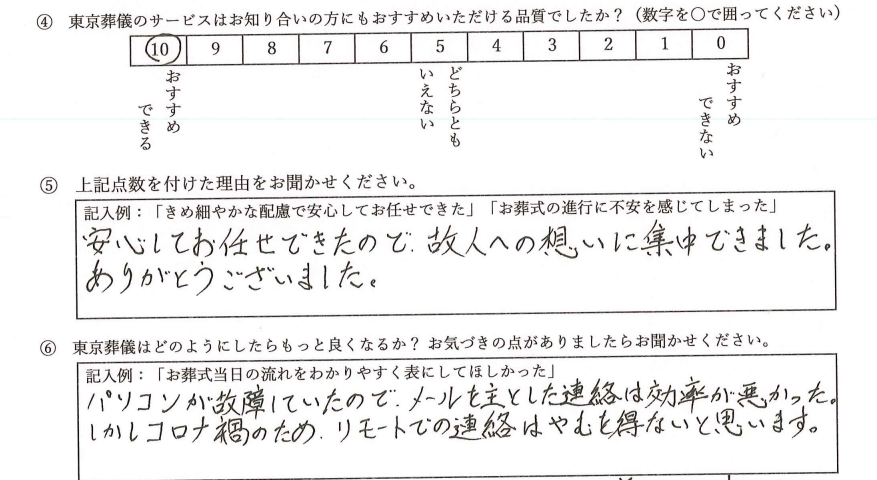 ④ 東京葬儀のサービスはお知り合いの方にもおすすめいただける品質でしたか？（数字を〇で囲ってください）
10 9 8 7 6 5 4 3 2 1 0
おすすめ
できる
どちらとも
いえない
おすすめ
できない
⑤ 上記点数を付けた理由をお聞かせください。
記入例：「きめ細やかな配慮で安心してお任せできた」「お葬式の進行に不安を感じてしまった」
安心してお任せできたので、故人への想いに集中できました。
ありがとうございました。
⑥ 東京葬儀はどのようにしたらもっと良くなるか？ お気づきの点がありましたらお聞かせください。
記入例：「お葬式当日の流れをわかりやすく表にしてほしかった」
パソコンが故障していたので、メールを主とした連絡は効率が悪かった。
しかしコロナ禍のため、リモートでの連絡はやむを得ないと思います。